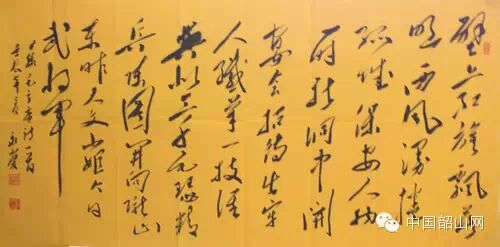 壁上红旗飘落
照西风漫卷
孤城保安人物
一时新洞中开
宴会招待出牢
人纤笔一枝谁
与似三千毛瑟精
兵阵图开向陇山
东昨天文小姐今日
武将军
毛主席诗一首
壬辰年
中国韶山网